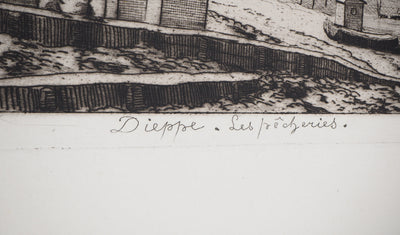 Dieppe. Les pêcheries.